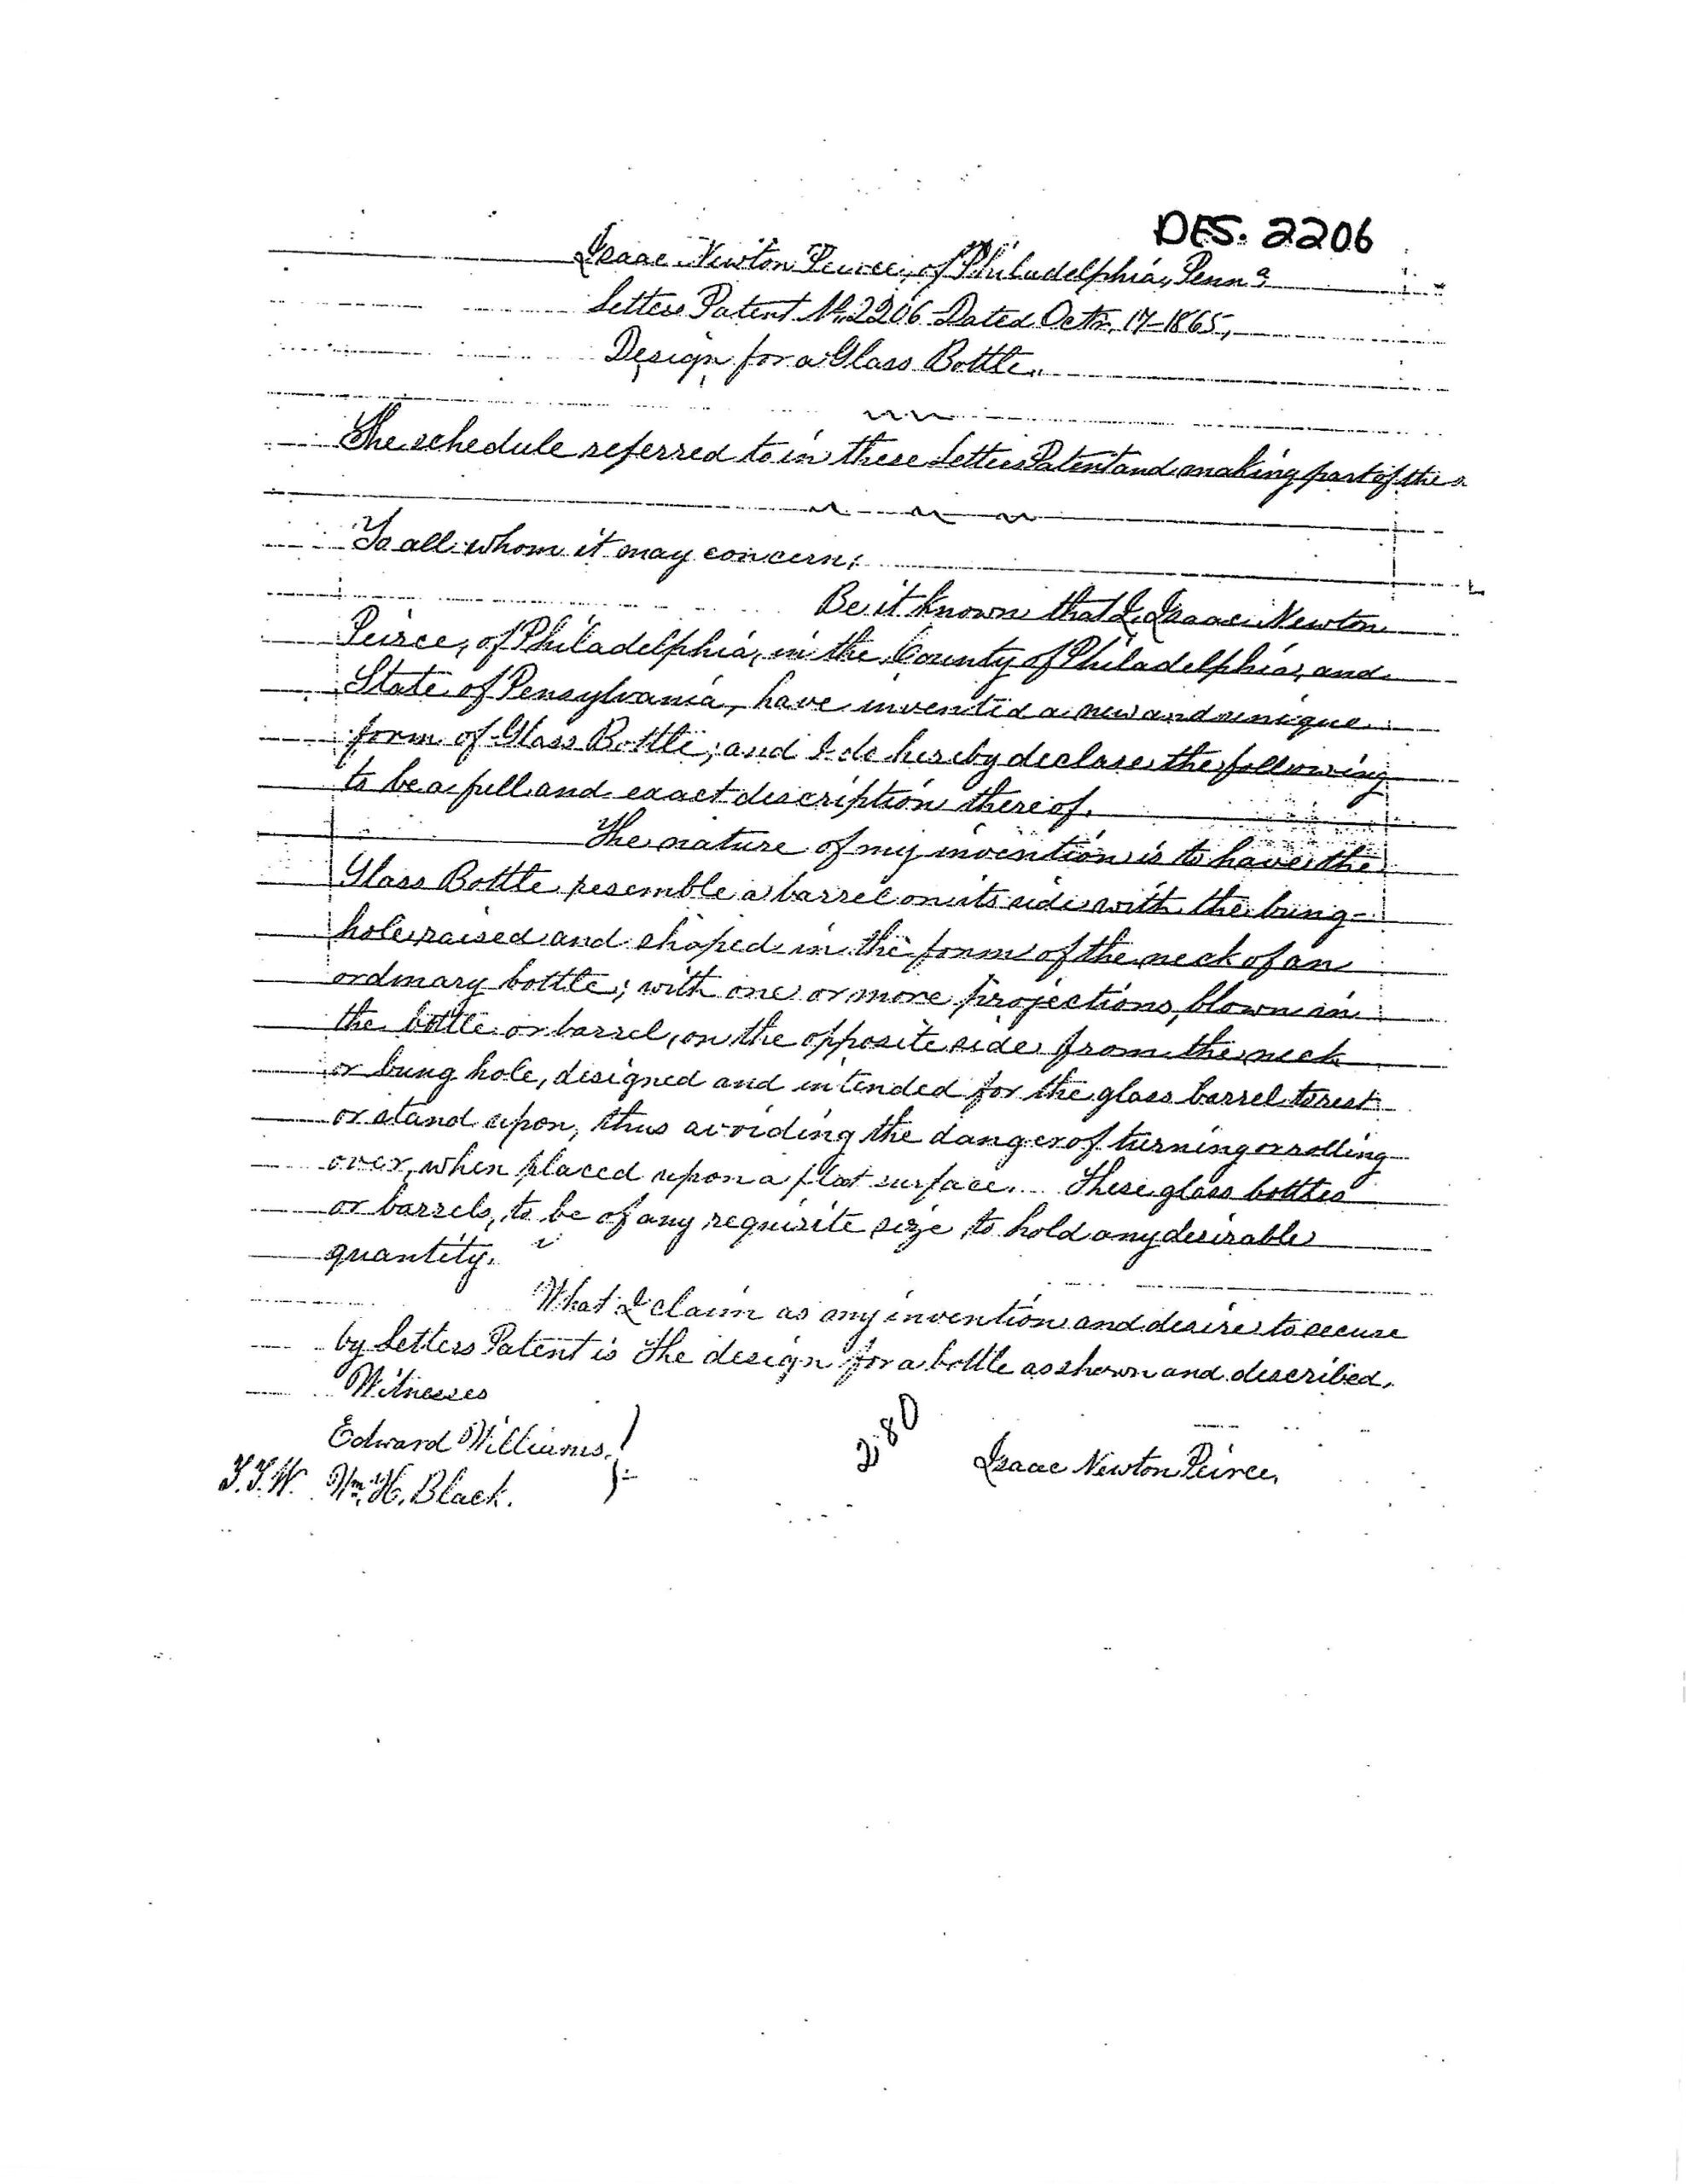 DES. 2206
Isaac Newton Peirce, of Philadelphia, Penna
Letters Patent No. 2206 Dated Octr. 17-1865,
Design for a Glass Bottle.
The schedule referred to in these Letters Patent and making part of the
To all whom it may concern:
Be it known that I, Isaac Newton
Peirce, of Philadelphia, in the County of Philadelphia, and
State of Pensylvania, have invented a new and unique
form of Glass Bottle; and I do hereby declare the following
to be a full and exact description thereof.
The nature of my invention is to have the
Glass Bottle resemble a barrel on its side with the bung-
hole raised and shaped in the form of the neck of an
ordinary bottle; with one or more projections, blown in
the bottle or barrel, on the opposite side from the neck
or bung hole, designed and intended for the glass barrel to rest
or stand upon, thus avoiding the danger of turning or rolling
over, when placed upon a flat surface. These glass bottles
or barrels, to be of any requisite size, to hold any desirable
quantity.
What I claim as my invention and desire to secure
by Letters Patent is the design for a bottle as shown and described.
Witnesses
Edward Williams.
T.T.W. Wm. H. Black.
280
Isaac Newton Peirce.